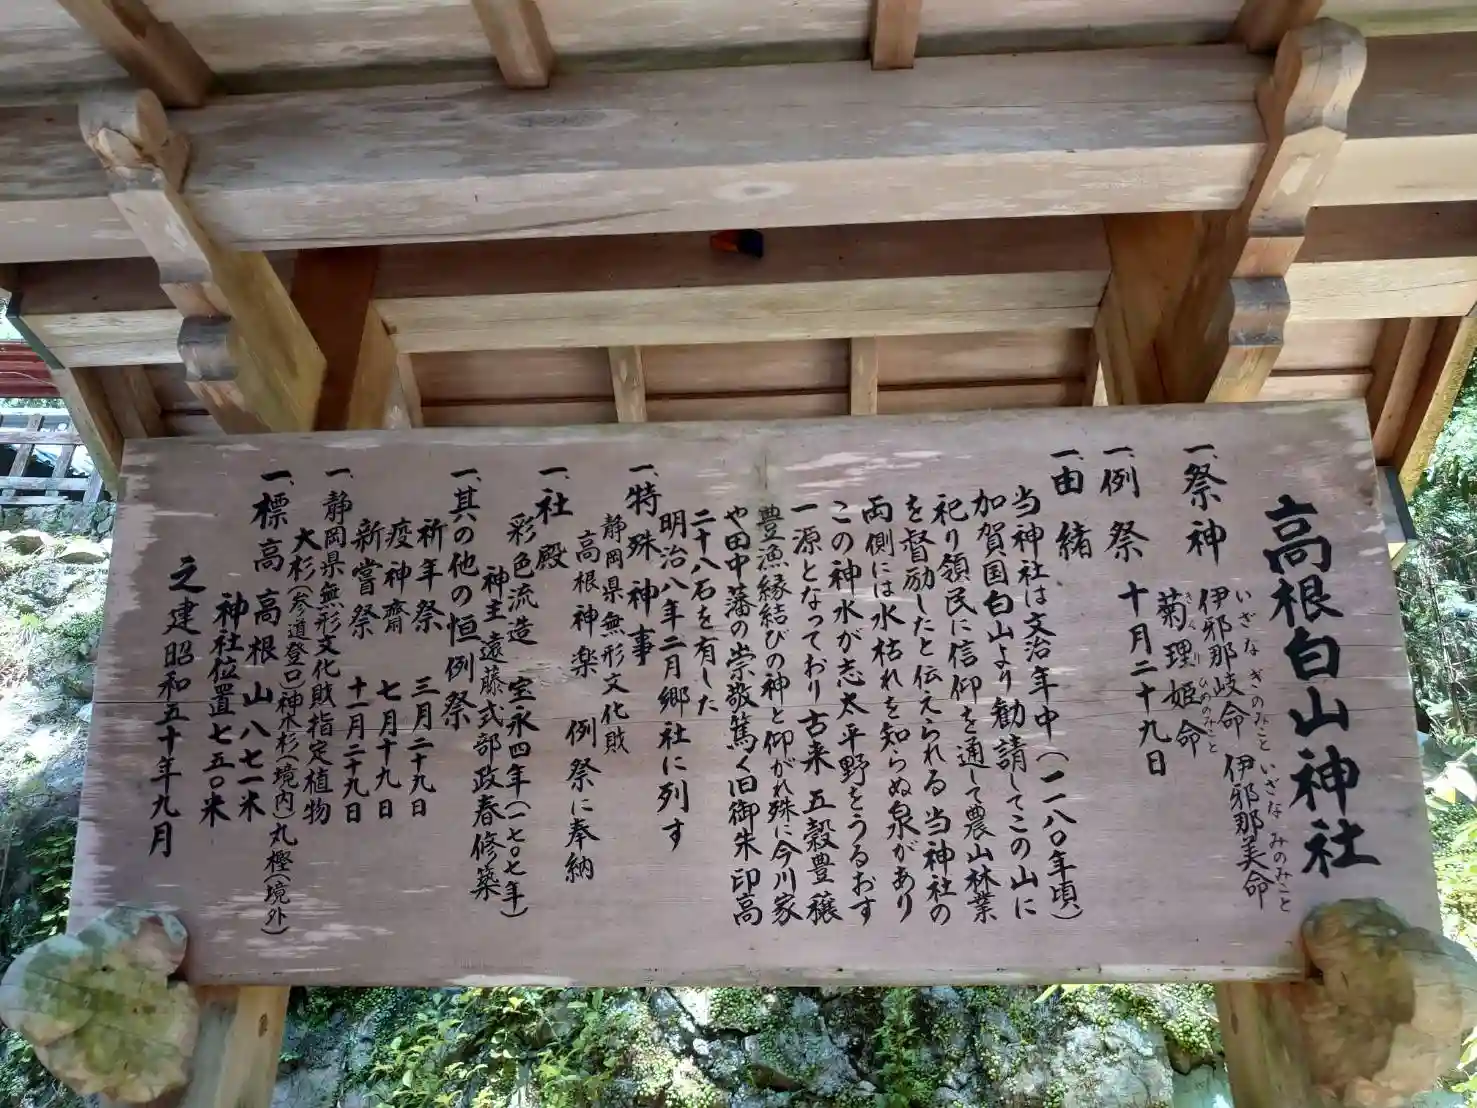 高根白山神社
一、祭神
いざなぎのみこと いざなみのみこと
伊邪那岐命 伊邪那美命
きくりひめのみこと
菊理姫命
一、例祭 十月二十九日
一、由緒
当神社は文治年中(一一八〇年頃)
加賀国白山より勧請してこの山に
祀り領民に信仰を通して農山林業
を督励したと伝えられる 当神社の
両側には水枯れを知らぬ泉があり
この神水が志太平野をうるおす
一源となっており古来 五穀豊穣
豊漁縁結びの神と仰がれ殊に今川家
や田中藩の崇敬篤く旧御朱印高
二十八石を有した
明治八年二月郷社に列す
一、特殊神事
静岡県無形文化財
高根神楽 例祭に奉納
一、社殿
彩色流造 宝永四年(一七〇七年)
神主遠藤式部政春修築
一、其の他の恒例祭
祈年祭 三月二十九日
疫神齋 七月十九日
新嘗祭 十一月二十九日
一、静岡県無形文化財指定植物
大杉(参道登口)神木杉(境内)丸樫(境外)
一、標高 高根山八七一米
神社位置七五〇米
之建昭和五十年九月